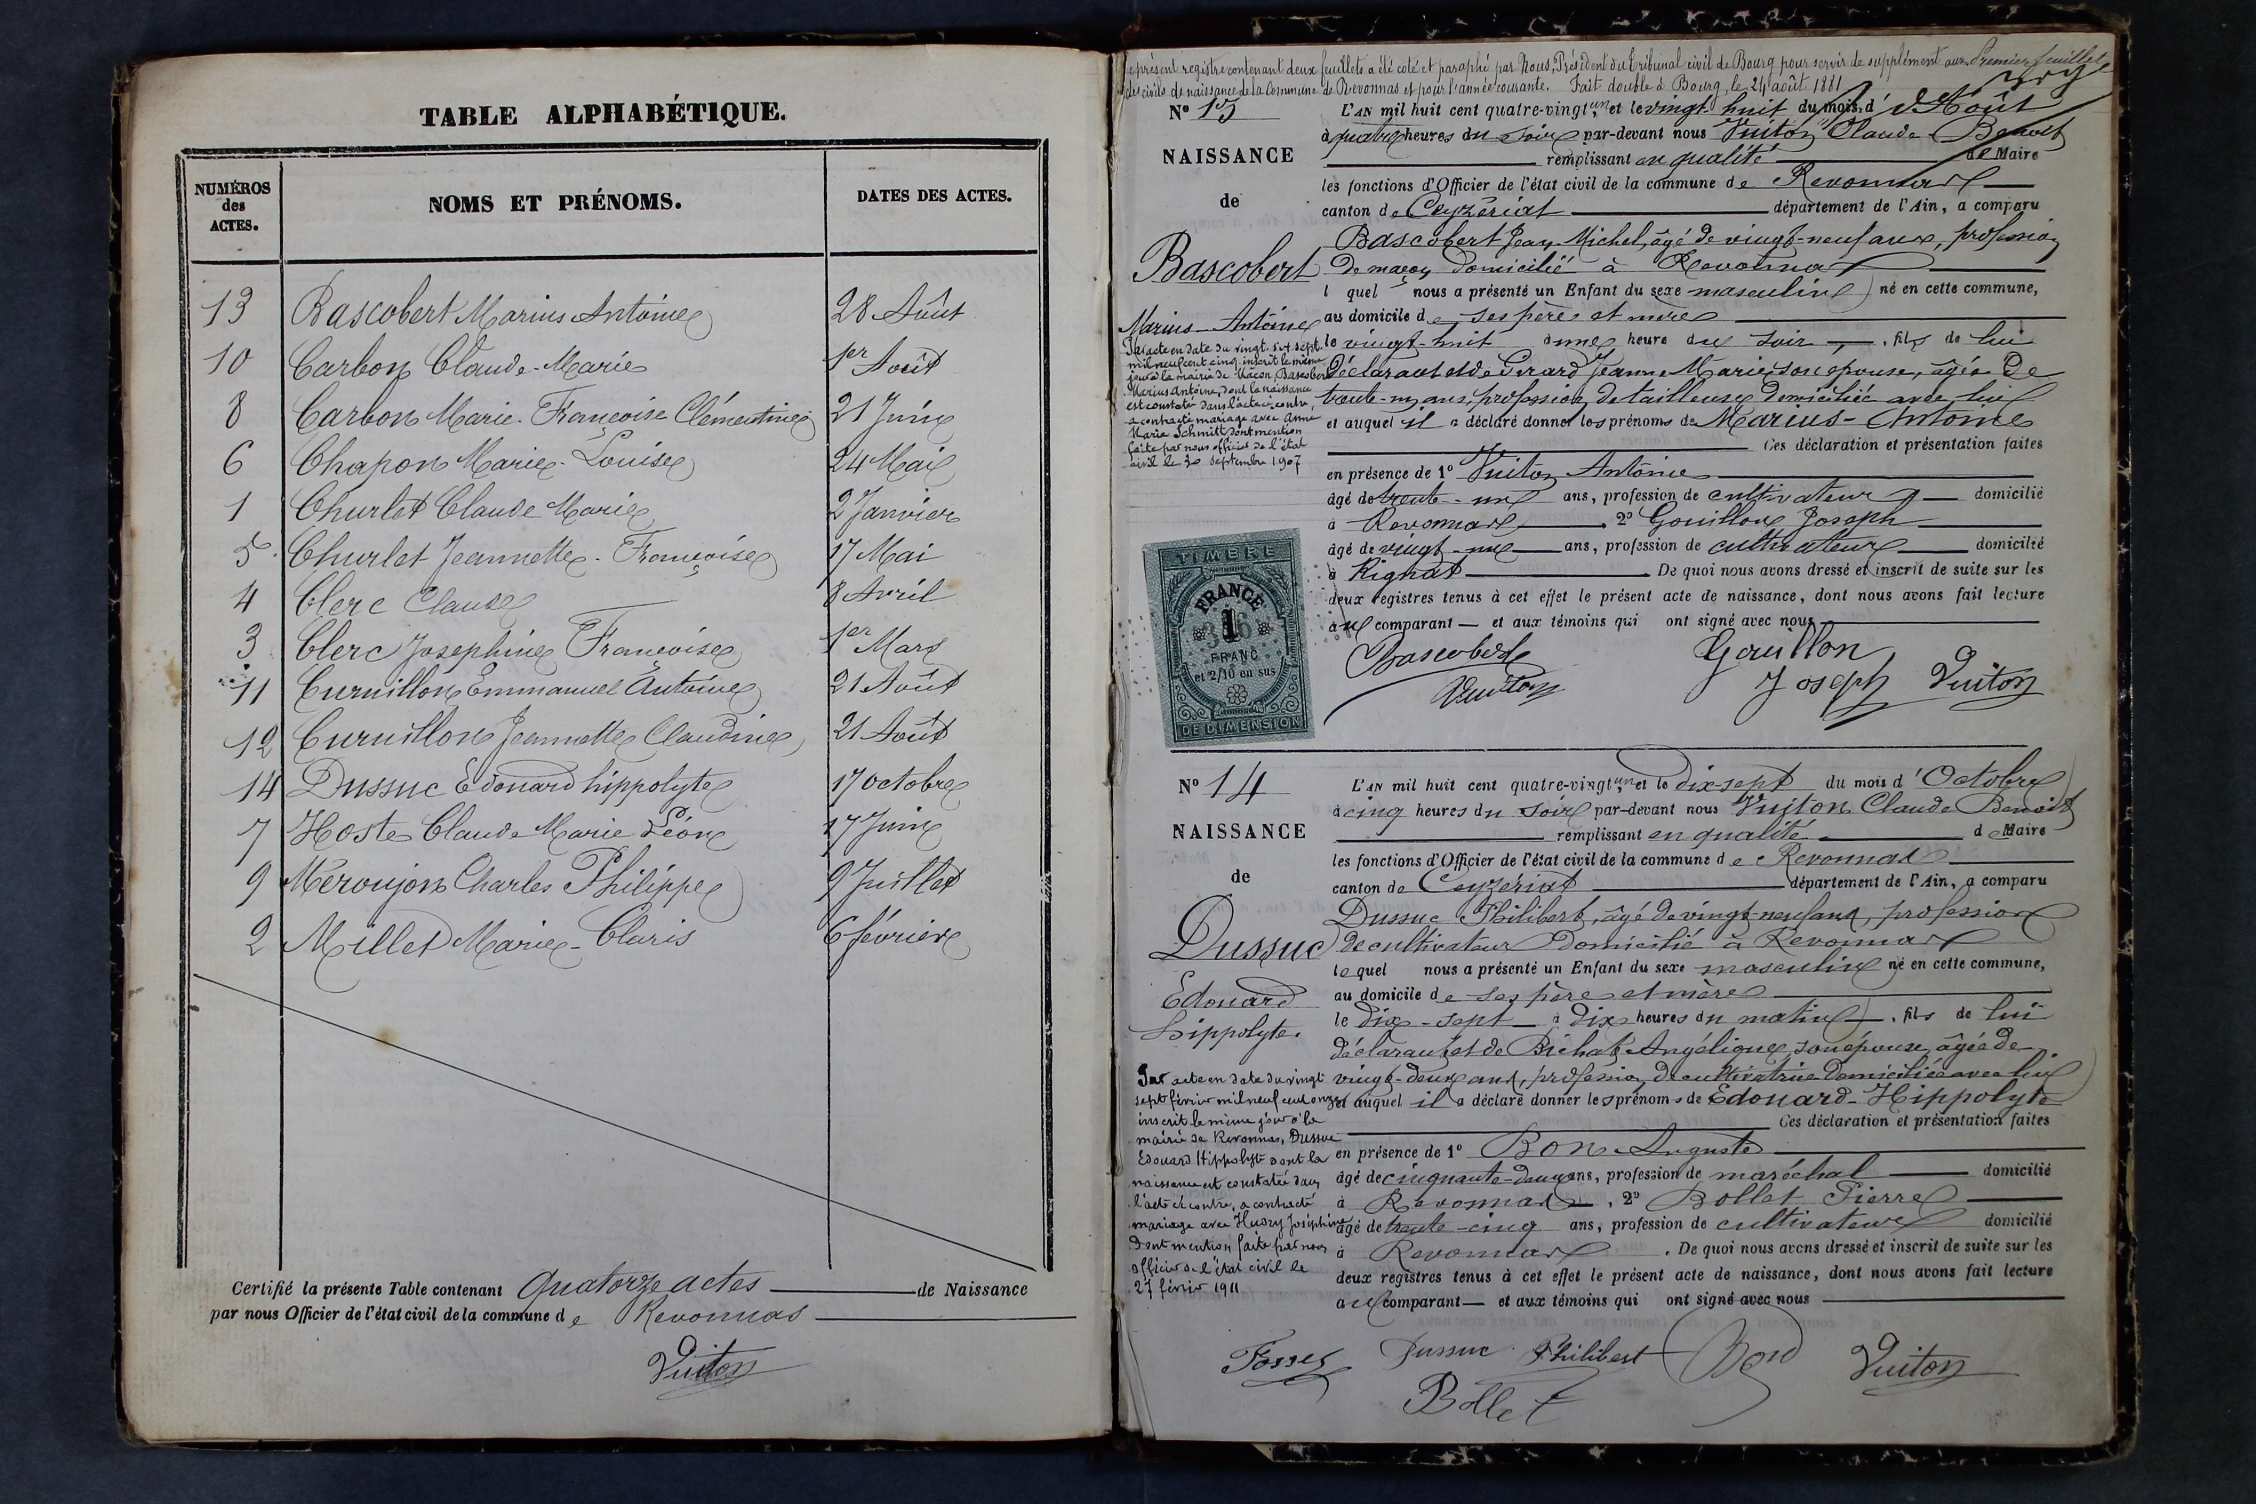 TABLE ALPHABÉTIQUE.
NUMÉROS des ACTES.
NOMS ET PRÉNOMS.
DATES DES ACTES.
13 Bascobert Marius Antoine 28 Août
10 Carbon Claude-Marie 1er Août
8 Carbon Marie-Françoise Clémentine 21 Juin
6 Chapon Marie-Louise 24 Mai
1 Churlet Claude Marie 2 Janvier
5 Churlet Jeannette-Françoise 17 Mai
4 Clerc Claude 8 Avril
3 Clerc Josephine Françoise 1er Mars
11 Curnillon Emmanuel Antoine 21 Août
12 Curnillon Jeannette Claudine 21 Août
14 Dussuc Edouard hippolyte 17 octobre
7 Hoste Claude Marie Léon 17 Juin
9 Meroujon Charles Philippe 9 Juillet
2 Millet Marie-Claris 6 février
Certifié la présente Table contenant Quatorze actes de Naissance
par nous Officier de l'état civil de la commune de Revonnas
Vuiton
présent registre contenant deux feuillets a été coté et paraphé par Nous, Président du Tribunal civil de Bourg pour servir de supplément aux Premier feuillet
des civils de naissance de la Commune de Revonnas et pour l'année courante. Fait double à Bourg, le 24 août 1881
No 13
NAISSANCE
de
Bascobert
Marius-Antoine
Par acte en date du vingt-sept sept.
mil neuf cent cinq inscrit le même
jour à la mairie de Mâcon, Bascobert
Marius Antoine, dont la naissance
est constatée dans l'acte ci-contre,
a contracté mariage avec Anne
Marie Schmitt dont mention
faite par nous officier de l'état
civil le 30 septembre 1907
L'AN mil huit cent quatre-vingt un et le vingt huit du mois d'Août
à quatre heures du soir par-devant nous Vuiton Claude Benoit
remplissant en qualité de Maire
les fonctions d'Officier de l'état civil de la commune de Revonnas
canton de Ceyzériat département de l'Ain, a comparu
Bascobert Jean-Michel, âgé de vingt-neuf ans, profession
de maçon domicilié à Revonnas
lequel nous a présenté un Enfant du sexe masculin né en cette commune,
au domicile de ses père et mère
le vingt-huit à une heure du soir, fils de lui
déclarant et de Gerard Jeanne Marie, son épouse, âgée de
trente-un ans, profession de tailleuse domiciliée avec lui
et auquel il a déclaré donner les prénoms de Marius-Antoine
Ces déclaration et présentation faites
en présence de 1o Vuiton Antoine
âgé de trente-un ans, profession de cultivateur domicilié
à Revonnas, 2o Gouillon Joseph
âgé de vingt-un ans, profession de cultivateur domicilié
à Rignat De quoi nous avons dressé et inscrit de suite sur les
deux registres tenus à cet effet le présent acte de naissance, dont nous avons fait lecture
au comparant et aux témoins qui ont signé avec nous
Bascobert Vuiton Gouillon Joseph Vuiton
TIMBRE
FRANCE
1
FRANC
et 2/10 en sus
DE DIMENSION
No 14
NAISSANCE
de
Dussuc
Edouard
hippolyte.
Par acte en date du vingt
sept février mil neuf cent onze
inscrit le même jour à la
mairie de Revonnas, Dussuc
Edouard Hippolyte dont la
naissance est constatée dans
l'acte ci contre, a contracté
mariage avec Huary Joséphine
Dont mention faite par nous
officier de l'état civil le
27 février 1911
L'AN mil huit cent quatre-vingt un et le dix-sept du mois d'Octobre
à cinq heures du soir par-devant nous Vuiton Claude Benoit
remplissant en qualité de Maire
les fonctions d'Officier de l'état civil de la commune de Revonnas
canton de Ceyzériat département de l'Ain, a comparu
Dussuc Philibert, âgé de vingt-neuf ans, profession
de cultivateur domicilié à Revonnas
lequel nous a présenté un Enfant du sexe masculin né en cette commune,
au domicile de ses père et mère
le dix-sept à dix heures du matin, fils de lui
déclarant et de Bichat Angélique, son épouse, âgée de
vingt-deux ans, profession de cultivatrice domiciliée avec lui
et auquel il a déclaré donner les prénoms de Edouard-Hippolyte
Ces déclaration et présentation faites
en présence de 1o Bon Auguste
âgé de cinquante-deux ans, profession de maréchal domicilié
à Revonnas, 2o Bollet Pierre
âgé de trente-cinq ans, profession de cultivateur domicilié
à Revonnas. De quoi nous avons dressé et inscrit de suite sur les
deux registres tenus à cet effet le présent acte de naissance, dont nous avons fait lecture
au comparant et aux témoins qui ont signé avec nous
Dussuc Philibert Bon Vuiton
Bollet